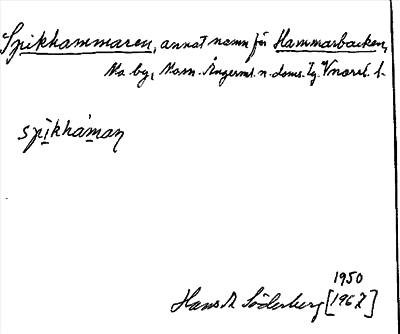 Spikhammaren, annat namn för Hammarbacken,
Va by, Nam. Ångerml. n. doms.
spikhåman
1950
Hans A Söderberg [1967]